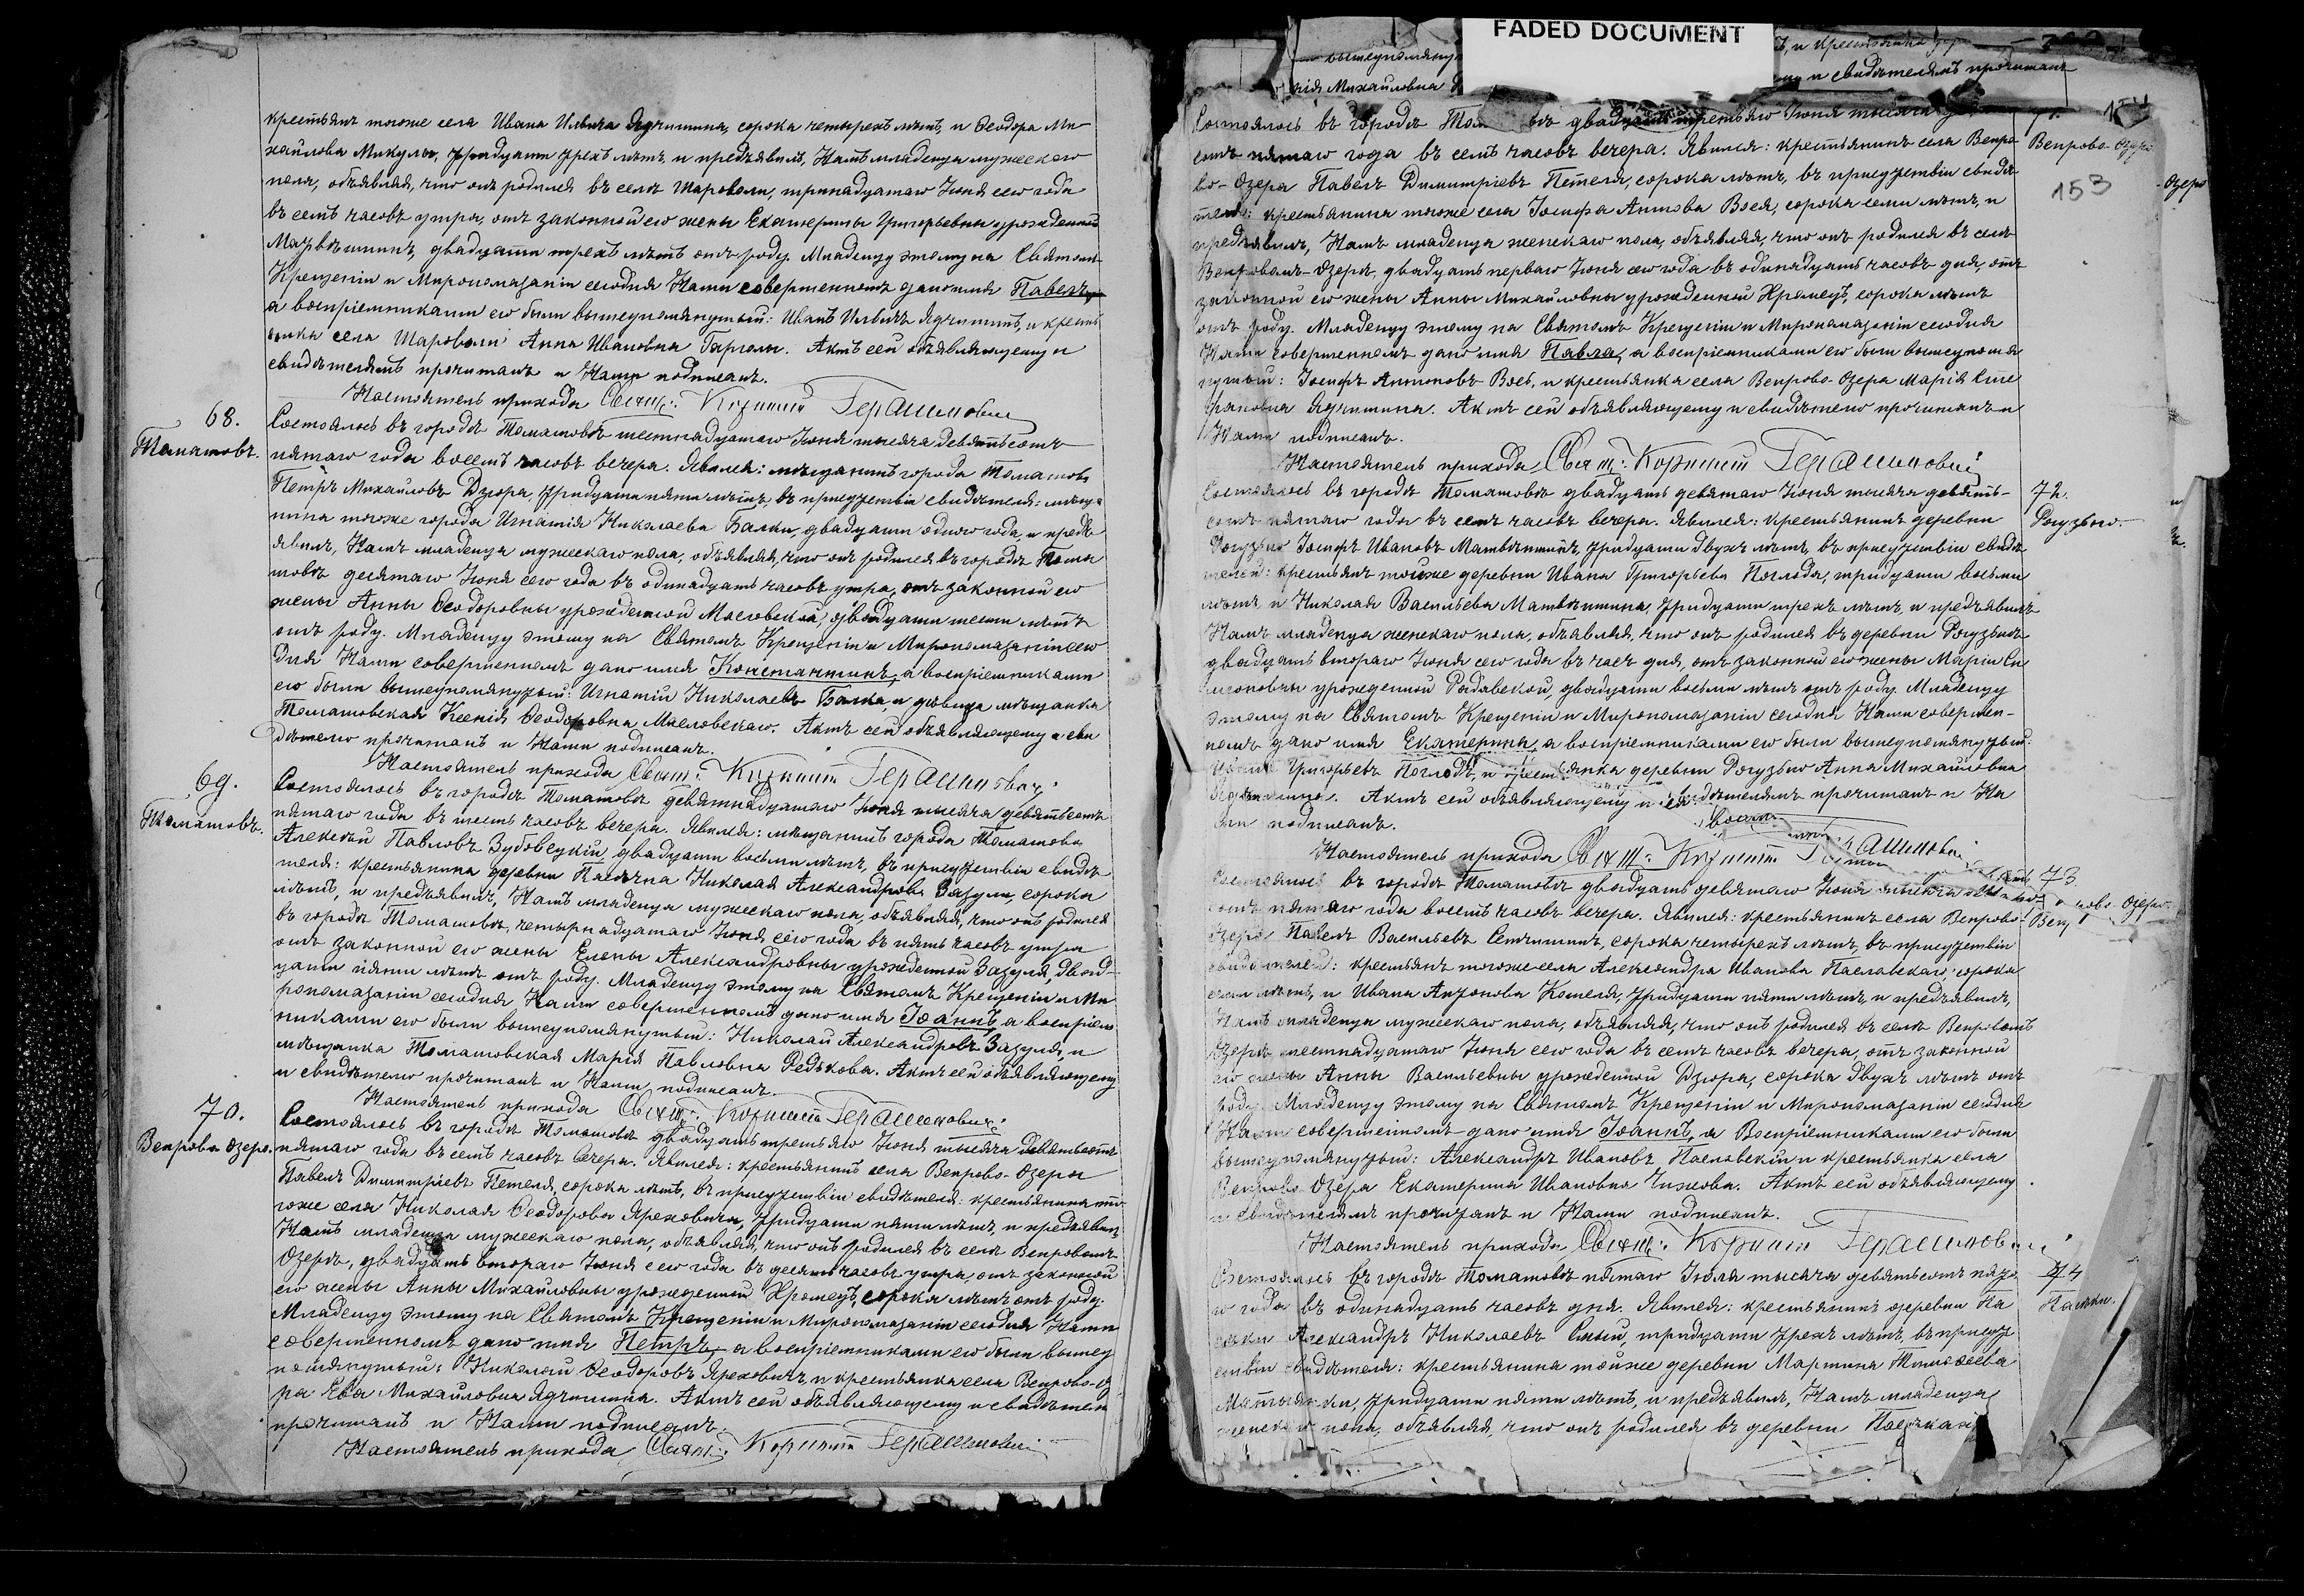 крестьянъ тогоже села Ивана Ильича Ядчишина, сорока четырехъ лѣтъ, и Ѳеодора Ми-
хайлова Микулы, тридцати трехъ лѣтъ, и предъявилъ Намъ младенца мужескаго
пола, объявляя, что онъ родился въ селѣ Шароволи, тринадцатаго Іюня сего года
въ семь часовъ утра, отъ законной его жены Екатерины Григорьевны урожденной
Матвѣишинъ, двадцати трехъ лѣтъ отъ роду. Младенцу этому на Святомъ
Крещеніи и Миропомазаніи сегодня Нами совершенномъ дано имя Павелъ,
а воспріемниками его были вышеупомянутый: Иванъ Ильичъ Ядчишинъ, и кресть
янка села Шароволи Анна Ивановна Гарголь. Актъ сей объявляющему и
свидѣтелямъ прочитанъ и Нами подписанъ.
Настоятель прихода Свящ: Корнилій Герасимовичъ
68.
Томашовъ.
Состоялось въ городѣ Томашовѣ шестнадцатаго Іюня тысяча девятьсотъ
пятаго года восемь часовъ вечера. Явился: мѣщанинъ города Томашова
Петръ Михайловъ Дзюра, тридцати пяти лѣтъ, въ присутствіи свидѣтеля: мѣща-
нина тогоже города Игнатія Николаева Балки, двадцати одного года, и предъ
явилъ Намъ младенца мужескаго пола, объявляя, что онъ родился въ городѣ Тома
шовѣ десятаго Іюня сего года въ одинадцать часовъ утра, отъ законной его
жены Анны Ѳеодоровны урожденной Масловской, двадцати шести лѣтъ
отъ роду. Младенцу этому на Святомъ Крещеніи и Миропомазаніи сего
дня Нами совершенномъ дано имя Константинъ, а воспріемниками
его были вышеупомянутый: Игнатій Николаевъ Балка, и дѣвица мѣщанка
Томашовская Ксенія Ѳеодоровна Масловскаго. Актъ сей объявляющему и сви
дѣтелю прочитанъ и Нами подписанъ.
Настоятель прихода Свящ: Корнилій Герасимовичъ
69.
Томашовъ.
Состоялось въ городѣ Томашовѣ девятнадцатаго Іюня тысяча девятьсотъ
пятаго года въ шесть часовъ вечера. Явился: мѣщанинъ города Томашова
Алексѣй Павловъ Зубовецкій, двадцати восьми лѣтъ, въ присутствіи свидѣ
теля: крестьянина деревни Пасѣчна Николая Александрова Зазули, сорока
лѣтъ, и предъявилъ Намъ младенца мужескаго пола, объявляя, что онъ родился
въ городѣ Томашовѣ, четырнадцатаго Іюня сего года въ пять часовъ утра
отъ законной его жены Елены Александровны урожденной Зазуля, двад-
цати пяти лѣтъ отъ роду. Младенцу этому на Святомъ Крещеніи и Ми
ропомазаніи сегодня Нами совершенномъ дано имя Іоаннъ, а воспріем
никами его были вышеупомянутый: Николай Александровъ Зазуля, и
мѣщанка Томашовская Марія Павловна Редькова. Актъ сей объявляющему
и свидѣтелю прочитанъ и Нами подписанъ.
Настоятель прихода Свящ: Корнилій Герасимовичъ
70.
Венрово-Озеро.
Состоялось въ городѣ Томашовѣ двадцать третьяго Іюня тысяча девятьсотъ
пятаго года въ семь часовъ вечера. Явился: крестьянинъ села Венрово-Озера
Павелъ Димитріевъ Петеля, сорока лѣтъ, въ присутствіи свидѣтеля: крестьянина то
гоже села Николая Ѳеодорова Яреховича, тридцати пяти лѣтъ, и предъявилъ
Намъ младенца мужескаго пола, объявляя, что онъ родился въ селѣ Венровомъ
Озерѣ, двадцать втораго Іюня сего года въ десять часовъ утра, отъ законной
его жены Анны Михайловны урожденной Кромецъ, сорока лѣтъ отъ роду.
Младенцу этому на Святомъ Крещеніи и Миропомазаніи сегодня Нами
совершенномъ дано имя Петръ, а воспріемниками его были вышеу
помянутый: Николай Ѳеодоровъ Яреховичъ и крестьянка села Венрово-Озе
ра Ева Михайловна Ядчишина. Актъ сей объявляющему и свидѣтелю
прочитанъ и Нами подписанъ.
Настоятель прихода Свящ: Корнилій Герасимовичъ
FADED DOCUMENT
вышеупомяну
и крестьянка
нія Михайловна
и свидѣтелямъ прочитанъ
71.
Венрово-Озеро
153
Озеро
Состоялось въ городѣ Том двадцать третьяго Іюня тысяча
сотъ пятаго года въ семь часовъ вечера. Явился: крестьянинъ села Венро
во-Озера Павелъ Димитріевъ Петеля, сорока лѣтъ, въ присутствіи свидѣ
теля: крестьянина тогоже села Іосифа Антонова Воса, сорока семи лѣтъ, и
предъявилъ Намъ младенца женскаго пола, объявляя, что онъ родился въ селѣ
Венровомъ-Озерѣ, двадцать перваго Іюня сего года въ одинадцать часовъ дня, отъ
законной его жены Анны Михайловны урожденной Кромецъ, сорока лѣтъ
отъ роду. Младенцу этому на Святомъ Крещеніи и Миропомазаніи сегодня
Нами совершенномъ дано имя Павла, а воспріемниками его были вышеупомя
нутый: Іосифъ Антоновъ Вось, и крестьянка села Венрово-Озера Марія Сте
фановна Ядчишина. Актъ сей объявляющему и свидѣтелю прочитанъ и
Нами подписанъ.
Настоятель прихода Свящ: Корнилій Герасимовичъ
72.
Рогузьно.
Состоялось въ городѣ Томашовѣ двадцать девятаго Іюня тысяча девять-
сотъ пятаго года въ семь часовъ вечера. Явился: крестьянинъ деревни
Рогузьно Іосифъ Ивановъ Матвѣишинъ, тридцати двухъ лѣтъ, въ присутствіи свидѣ
телей: крестьянъ тойже деревни Ивана Григорьева Поглода, тридцати восьми
лѣтъ, и Николая Васильева Матвѣишина, тридцати трехъ лѣтъ, и предъявилъ
Намъ младенца женскаго пола, объявляя, что онъ родился въ деревни Рогузьнѣ
двадцать втораго Іюня сего года въ часъ дня, отъ законной его жены Маріи Си
меоновны урожденной Радавской, двадцати восьми лѣтъ отъ роду. Младенцу
этому на Святомъ Крещеніи и Миропомазаніи сегодня Нами совершен-
номъ дано имя Екатерина, а воспріемниками его были вышеупомянутый:
Иванъ Григорьевъ Поглодъ, и крестьянка деревни Рогузьно Анна Михайловна
Актъ сей объявляющему и свидѣтелямъ прочитанъ и На
ми подписанъ.
Настоятель прихода Свящ: Корнилій Герасимовичъ
73.
Состоялось въ городѣ Томашовѣ двадцать девятаго Іюня тысяча
сотъ пятаго года восемь часовъ вечера. Явился: крестьянинъ села Венрово-
Озера Павелъ Васильевъ Сетчишинъ, сорока четырехъ лѣтъ, въ присутствіи
свидѣтелей: крестьянъ тогоже села Александра Иванова Пасловскаго, сорока
семи лѣтъ, и Ивана Антонова Кометя, тридцати пяти лѣтъ, и предъявилъ
Намъ младенца мужескаго пола, объявляя, что онъ родился въ селѣ Венровомъ
Озерѣ, шестнадцатаго Іюня сего года въ семь часовъ вечера, отъ законной
его жены Анны Васильевны урожденной Дзюра, сорока двухъ лѣтъ отъ
роду. Младенцу этому на Святомъ Крещеніи и Миропомазаніи сегодня
Нами совершенномъ дано имя Іоаннъ, а Воспріемниками его были
вышеупомянутый: Александръ Ивановъ Пасловскій и крестьянка села
Венрово-Озера Екатерина Ивановна Чижова. Актъ сей объявляющему
и свидѣтелямъ прочитанъ и Нами подписанъ.
Настоятель прихода Свящ: Корнилій Герасимовичъ
74
Пасѣки.
Состоялось въ городѣ Томашовѣ пятаго Іюля тысяча девятьсотъ пята
го года въ одинадцать часовъ дня. Явился: крестьянинъ деревни Па
сѣки Александръ Николаевъ Смый, тридцати трехъ лѣтъ, въ присут
ствіи свидѣтеля: крестьянина тойже деревни Мартина Тимоѳеева
тридцати пяти лѣтъ, и предъявилъ Намъ младенца
женскаго пола, объявляя, что онъ родился въ деревни Пасѣкахъ